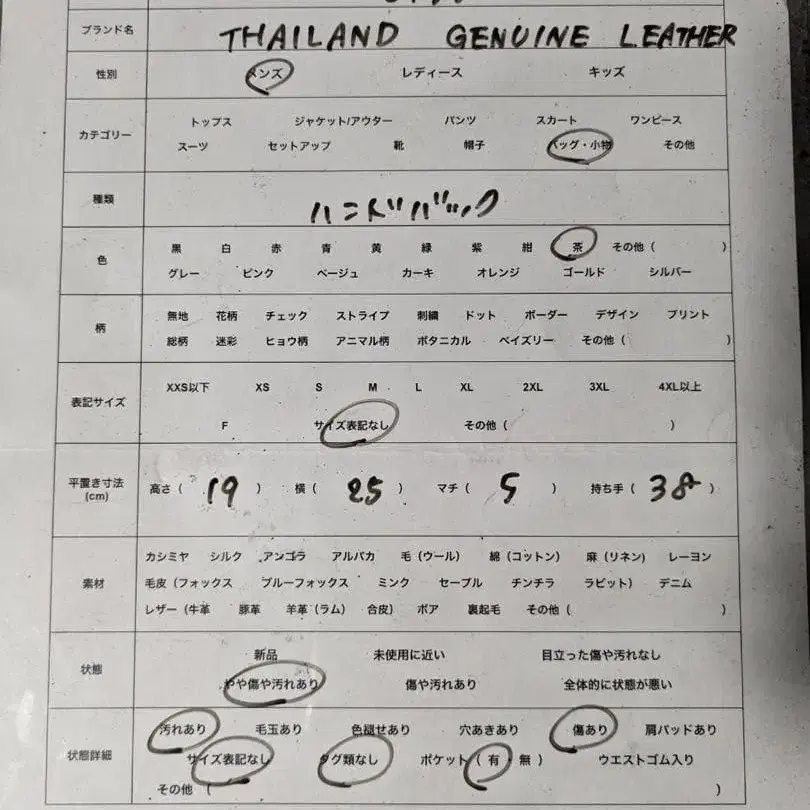 ブランド名 THAILAND GENUINE LEATHER
性別 メンズ レディース キッズ
カテゴリー
トップス ジャケット/アウター パンツ スカート ワンピース
スーツ セットアップ 靴 帽子 バッグ・小物 その他
種類 ハンドバック
色
黒 白 赤 青 黄 緑 紫 紺 茶 その他 ( )
グレー ピンク ベージュ カーキ オレンジ ゴールド シルバー
柄
無地 花柄 チェック ストライプ 刺繍 ドット ボーダー デザイン プリント
総柄 迷彩 ヒョウ柄 アニマル柄 ボタニカル ペイズリー その他 ( )
表記サイズ
XXS以下 XS S M L XL 2XL 3XL 4XL以上
F サイズ表記なし その他 ( )
平置き寸法
(cm)
高さ ( 19 ) 横 ( 25 ) マチ ( 5 ) 持ち手 ( 38 )
素材
カシミヤ シルク アンゴラ アルパカ 毛 (ウール) 綿 (コットン) 麻 (リネン) レーヨン
毛皮 (フォックス ブルーフォックス ミンク セーブル チンチラ ラビット) デニム
レザー (牛革 豚革 羊革 (ラム) 合皮) ボア 裏起毛 その他 ( )
状態
新品 未使用に近い 目立った傷や汚れなし
やや傷や汚れあり 傷や汚れあり 全体的に状態が悪い
状態詳細
汚れあり 毛玉あり 色褪せあり 穴あきあり 傷あり 肩パッドあり
サイズ表記なし タグ類なし ポケット ( 有・無 ) ウエストゴム入り
その他 ( )